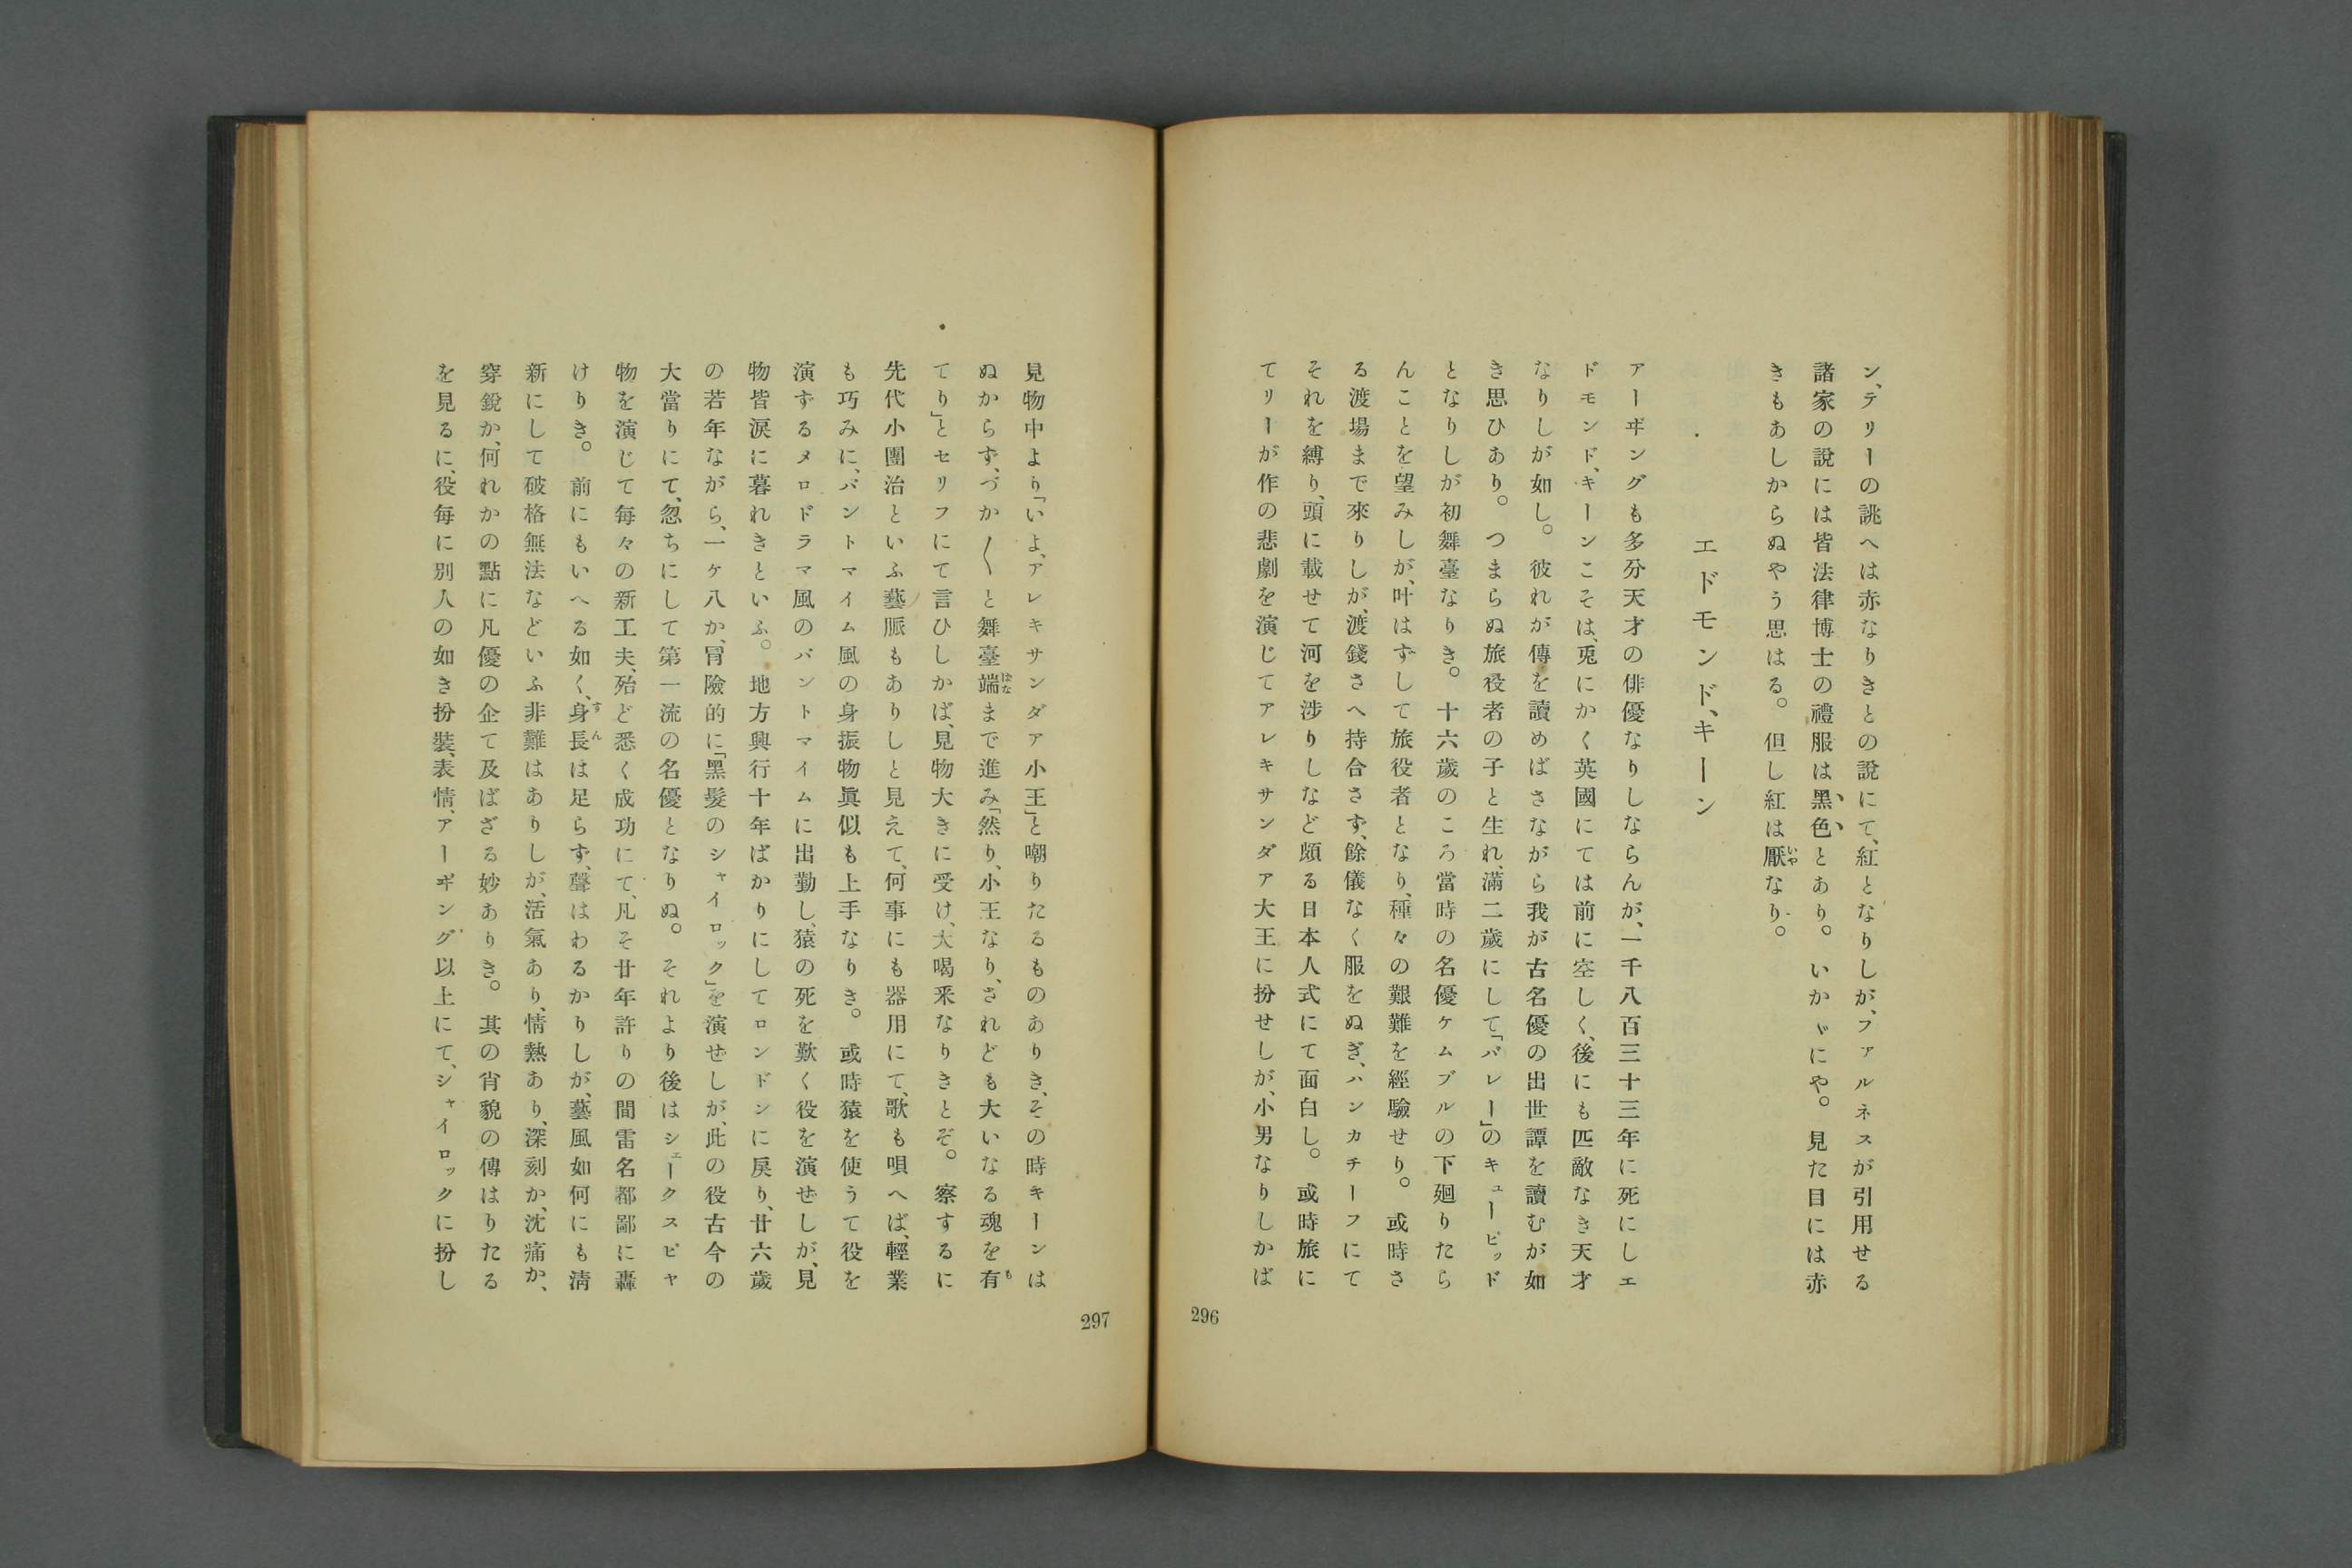 ン、テリーの誂へは赤なりきとの說にて、紅となりしが、ファルネスが引用せる
諸家の說には皆法律博士の禮服は黑色とあり。いかゞにや。見た目には赤
きもあしからぬやう思はる。但し紅は厭なり。
エドモンド、キーン
アーヰングも多分天才の俳優なりしならんが、一千八百三十三年に死にしエ
ドモンド、キーンこそは、兎にかく英國にては前に空しく、後にも匹敵なき天才
なりしが如し。彼れが傳を讀めばさながら我が古名優の出世譚を讀むが如
き思ひあり。つまらぬ旅役者の子と生れ、滿二歲にして「バレー」のキューピッド
となりしが初舞臺なりき。十六歲のころ當時の名優ケムブルの下廻りたら
んことを望みしが、叶はずして旅役者となり、種々の艱難を經驗せり。或時さ
る渡場まで來りしが、渡錢さへ持合さず、餘儀なく服をぬぎ、ハンカチーフにて
それを縛り、頭に載せて河を涉りしなど頗る日本人式にて面白し。或時旅に
てリーが作の悲劇を演じてアレキサンダア大王に扮せしが、小男なりしかば
296
見物中より「いよ、アレキサンダア小王」と嘲りたるものありき、その時キーンは
ぬからず、づか〱と舞臺端まで進み「然り、小王なり、されども大いなる魂を有
てり」とセリフにて言ひしかば、見物大きに受け、大喝釆なりきとぞ。察するに
先代小團治といふ藝脈もありしと見えて、何事にも器用にて、歌も唄へば、輕業
も巧みに、パントマイム風の身振物眞似も上手なりき。或時猿を使うて役を
演ずるメロドラマ風のパントマイムに出勤し、猿の死を歎く役を演せしが、見
物皆淚に暮れきといふ。地方興行十年ばかりにしてロンドンに戾り、廿六歲
の若年ながら、一ケ八か、冒險的に「黑髮のシャイロック」を演せしが、此の役古今の
大當りにて、忽ちにして第一流の名優となりぬ。それより後はシェークスピヤ
物を演じて每々の新工夫、殆ど悉く成功にて、凡そ廿年許りの間雷名都鄙に轟
けりき。前にもいへる如く、身長は足らず、聲はわるかりしが、藝風如何にも淸
新にして破格無法などいふ非難はありしが、活氣あり、情熱あり、深刻か、沈痛か、
穿銳か、何れかの點に凡優の企て及ばざる妙ありき。其の肖貌の傳はりたる
を見るに、役每に別人の如き扮裝、表情、アーヰング以上にて、シャイロックに扮し
297